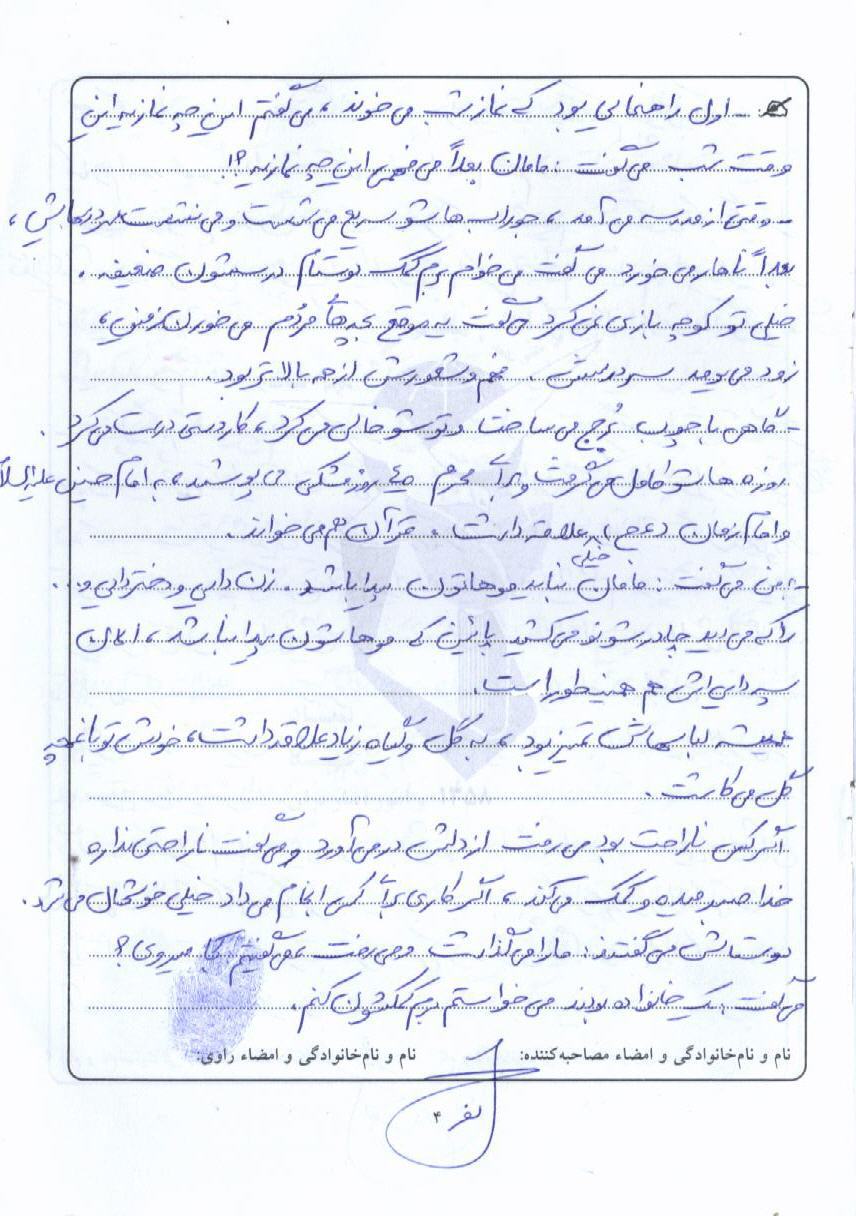 - اول راهنمایی بود که نماز شب می خوند ، می گفتم این چه نمازیه این
وقت شب می گفت : مامان بعداً می فهمی این چه نمازیه ؟!
- وقتی از مدرسه می آمد ، جوراب هاشو سریع می شست و می نشست سر درسهایش ،
بعداً ناهار می خورد می گفت می خوام برم کمک دوستام درسشون ضعیفه .
خیلی تو کوچه بازی نمی کرد می گفت یه موقع بچه های مردم می خورن زمین ،
زود می یومد سر درسش . فهم و شعورش از همه بالاتر بود .
- گاهی با چوب بُرج می ساخت و توشو خالی می کرد ، کاردستی درست می کرد .
روزه هاشو کامل می گرفت و برای محرم ۴۵ روز مشکی می پوشید ، به امام حسین علیه السلام
و امام زمان (عج) علاقه داشت . قرآن هم می خواند .
خیلی
- به من می گفت : مامان نباید موهاتون پیدا باشد . زن دایی و دختر دایی و ...
را که می دید چادرشونو می کشید پائین که موهاشون پیدا نباشد ، الان
پسر دایی اش هم همینطور است .
همیشه لباسهاش تمیز بود ، به گل و گیاه زیاد علاقه داشت ، خودش تو باغچه
گل می کاشت .
اگر کسی ناراحت بود می رفت از دلش در می آورد و می گفت ناراحتی نداره
خدا صبر میده و کمک می کند ، اگر کاری برای کسی انجام می داد خیلی خوشحال می شد .
دوستاش می گفتند : ما را می گذاشت و می رفت ، می گفتیم کجا میروی ؟
می گفت : یک خانواده بودند می خواستم برم کمکشون کنم .
نام و نام‌خانوادگی و امضاء مصاحبه‌کننده: نام و نام‌خانوادگی و امضاء راوی:
نفر ۴